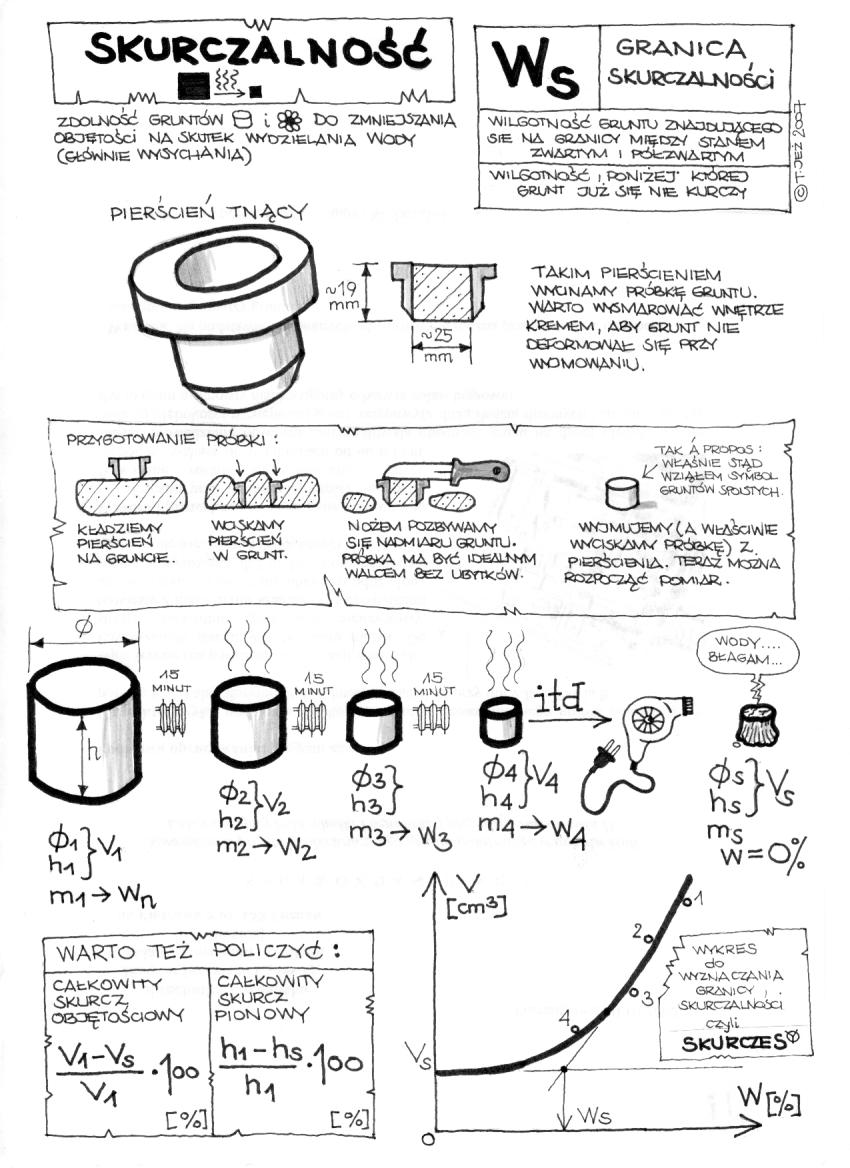 SKURCZALNOŚĆ
ZDOLNOŚĆ GRUNTÓW i DO ZMNIEJSZANIA
OBJĘTOŚCI NA SKUTEK WYDZIELANIA WODY
(GŁÓWNIE WYSYCHANIA)
Ws
GRANICA
SKURCZALNOŚCI
WILGOTNOŚĆ GRUNTU ZNAJDUJĄCEGO
SIĘ NA GRANICY MIĘDZY STANEM
ZWARTYM I PÓŁZWARTYM
WILGOTNOŚĆ, PONIŻEJ KTÓREJ
GRUNT JUŻ SIĘ NIE KURCZY
© T. JEŻ 2007
PIERŚCIEŃ TNĄCY
~19
mm
~25
mm
TAKIM PIERŚCIENIEM
WYCINAMY PRÓBKĘ GRUNTU.
WARTO WYSMAROWAĆ WNĘTRZE
KREMEM, ABY GRUNT NIE
DEFORMOWAŁ SIĘ PRZY
WYJMOWANIU.
PRZYGOTOWANIE PRÓBKI:
KŁADZIEMY
PIERŚCIEŃ
NA GRUNCIE.
WCISKAMY
PIERŚCIEŃ
W GRUNT.
NOŻEM POZBYWAMY
SIĘ NADMIARU GRUNTU.
PRÓBKA MA BYĆ IDEALNYM
WALCEM BEZ UBYTKÓW.
TAK Á PROPOS:
WŁAŚNIE STĄD
WZIĄŁEM SYMBOL
GRUNTÓW SPOISTYCH.
WYJMUJEMY (A WŁAŚCIWIE
WYCISKAMY PRÓBKĘ) Z
PIERŚCIENIA. TERAZ MOŻNA
ROZPOCZĄĆ POMIAR.
ϕ
h
15
MINUT
15
MINUT
15
MINUT
itd
WODY....
BŁAGAM...
ϕ1
h1 } V1
m1 → Wn
ϕ2
h2 } V2
m2 → W2
ϕ3
h3 }
m3 → W3
ϕ4
h4 } V4
m4 → W4
ϕs
hs } Vs
ms
W = 0%
WARTO TEŻ POLICZYĆ:
CAŁKOWITY
SKURCZ
OBJĘTOŚCIOWY
V1-Vs
V1
·100
[%]
CAŁKOWITY
SKURCZ
PIONOWY
h1-hs
h1
·100
[%]
V
[cm³]
1
2
3
4
Vs
Ws
W [%]
0
WYKRES
do
WYZNACZANIA
GRANICY
SKURCZALNOŚCI
czyli
SKURCZES